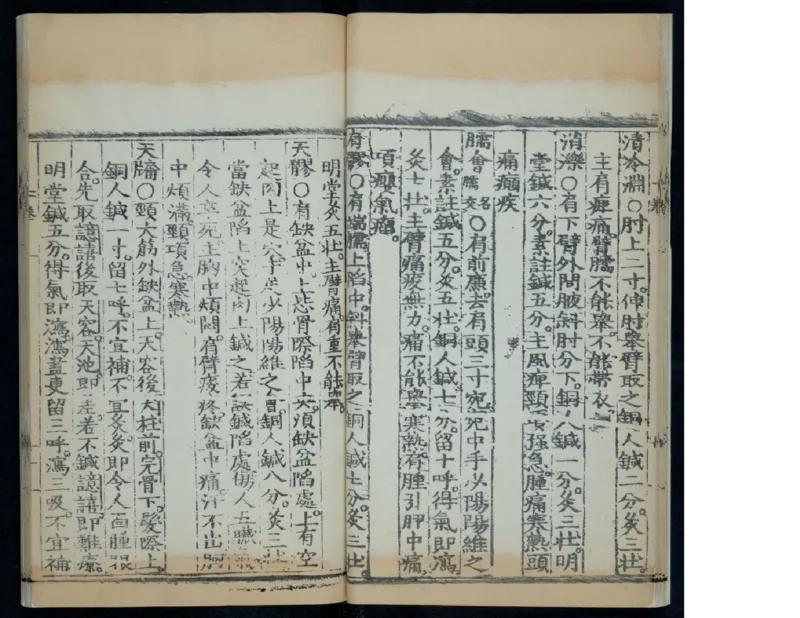 清冷淵○肘上二寸。伸肘舉臂取之銅人鍼二分。灸三壯。
主肩痺痛。臂臑不能舉。不能帶衣。
消濼○肩下臂外間腋斜肘分下。銅人鍼一分。灸三壯。明
堂鍼六分。素註鍼五分。主風痺頸項强急。腫痛寒熱頭
痛癲疾
臑會 臑交 名 ○肩前廉去肩頭三寸宛宛中手少陽陽維之
會。素註鍼五分。灸五壯。銅人鍼七分。留十呼。得氣即瀉。
灸七壯。主臂痛痠無力。痛不能舉。寒熱。肩腫引胛中痛。
項癭氣瘤。
肩髎○肩端臑上陷中。斜舉臂取之銅人鍼七分。灸三壯。
明堂灸五壯。主臂痛。肩重不能舉。
天髎○肩缺盆中。上毖骨際陷中央。須缺盆陷處。上有空
起肉上是穴。手足少陽陽維之會。銅人鍼八分。灸三壯
當缺盆陷上突起肉上鍼之若誤鍼陷處傷人五臟氣
令人卒死。主胸中煩悶。肩臂痠疼缺盆中痛。汗不出胸
中煩滿。頸項急寒熱
天牖○頸大筋外缺盆上。天容後天柱前。完骨下。髮際上。
銅人鍼一寸。留七呼。不宜補。不宜灸。灸即令人面腫眼
合。先取譩譆後取天容天池即差。若不鍼譩譆即難療。
明堂鍼五分。得氣即瀉。瀉盡更留三呼。瀉三吸。不宜補